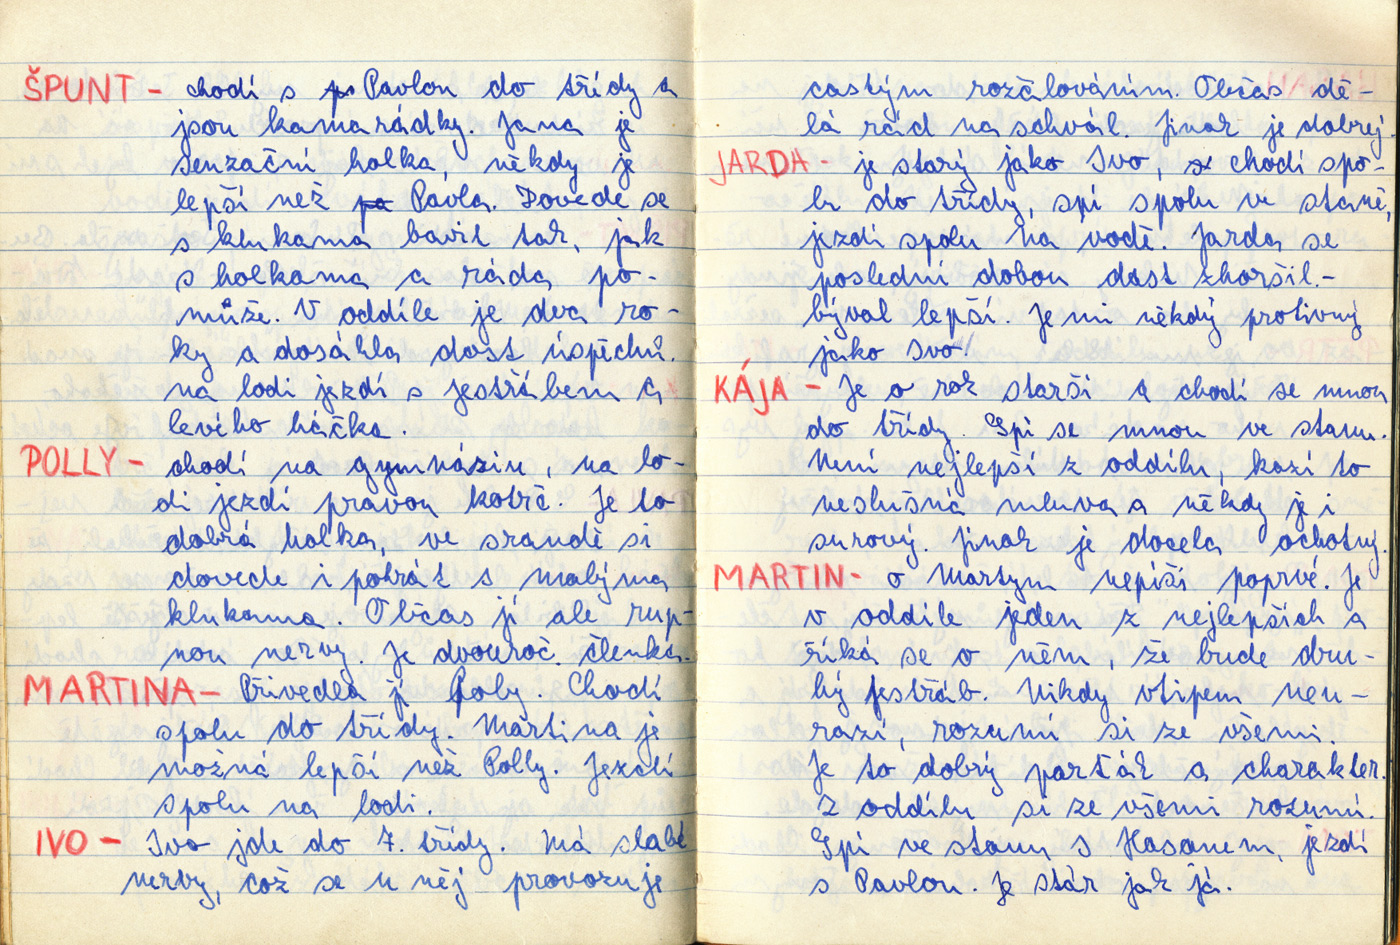 ŠPUNT - chodí s p Pavlou do třídy a
jsou kamarádky. Jana je
senzační holka, někdy je
lepší než pa Pavla. Dovede se
s klukama bavit tak, jak
s holkama a ráda po-
může. V oddíle je dva ro-
ky a dosáhla dost úspěchů.
na lodi jezdí s Jestřábem a
levého háčka.
POLLY - chodí na gymnáziu, na lo-
di jezdí pravou kotrč. Je to
dobrá holka, ve srandě si
dovede i pohrát s malýma
klukama. Občas jí ale rup-
nou nervy. Je dvouroč. členka.
MARTINA - Přivedla jí Polly. Chodí
spolu do třídy. Martina je
možná lepší než Polly. Jezdí
spolu na lodi.
IVO - Ivo jde do 7. třídy. Má slabé
nervy, což se u něj provozuje
castým rozčilováním. Občas dě-
lá rád naschvál. Jinak je dobrej.
JARDA - je starý jako Ivo, s chodí spo-
lu do třídy, spí spolu ve staně,
jezdí spolu na vodě. Jarda se
poslední dobou dost zhoršil. -
býval lepší. Je mi někdy protivný
jako Ivo!
KÁJA - Je o rok starší a chodí se mnou
do třídy. Spí se mnou ve stanu.
Není nejlepší z oddílu, kazí to
neslušná mluva a někdy je i
surový. Jinak je docela ochotný.
MARTIN - o Martynu nepíši poprvé. Je
v oddíle jeden z nejlepších a
říká se o něm, že bude dru-
hý Jestřáb. Nikdy vtipem neu-
razí, rozumí si ze všemi.
Je to dobrý parťák a charakter.
Z oddílu si ze všemi rozumí.
Spí ve stanu s Hasanem, jezdí
s Pavlou. Je stár jak já.